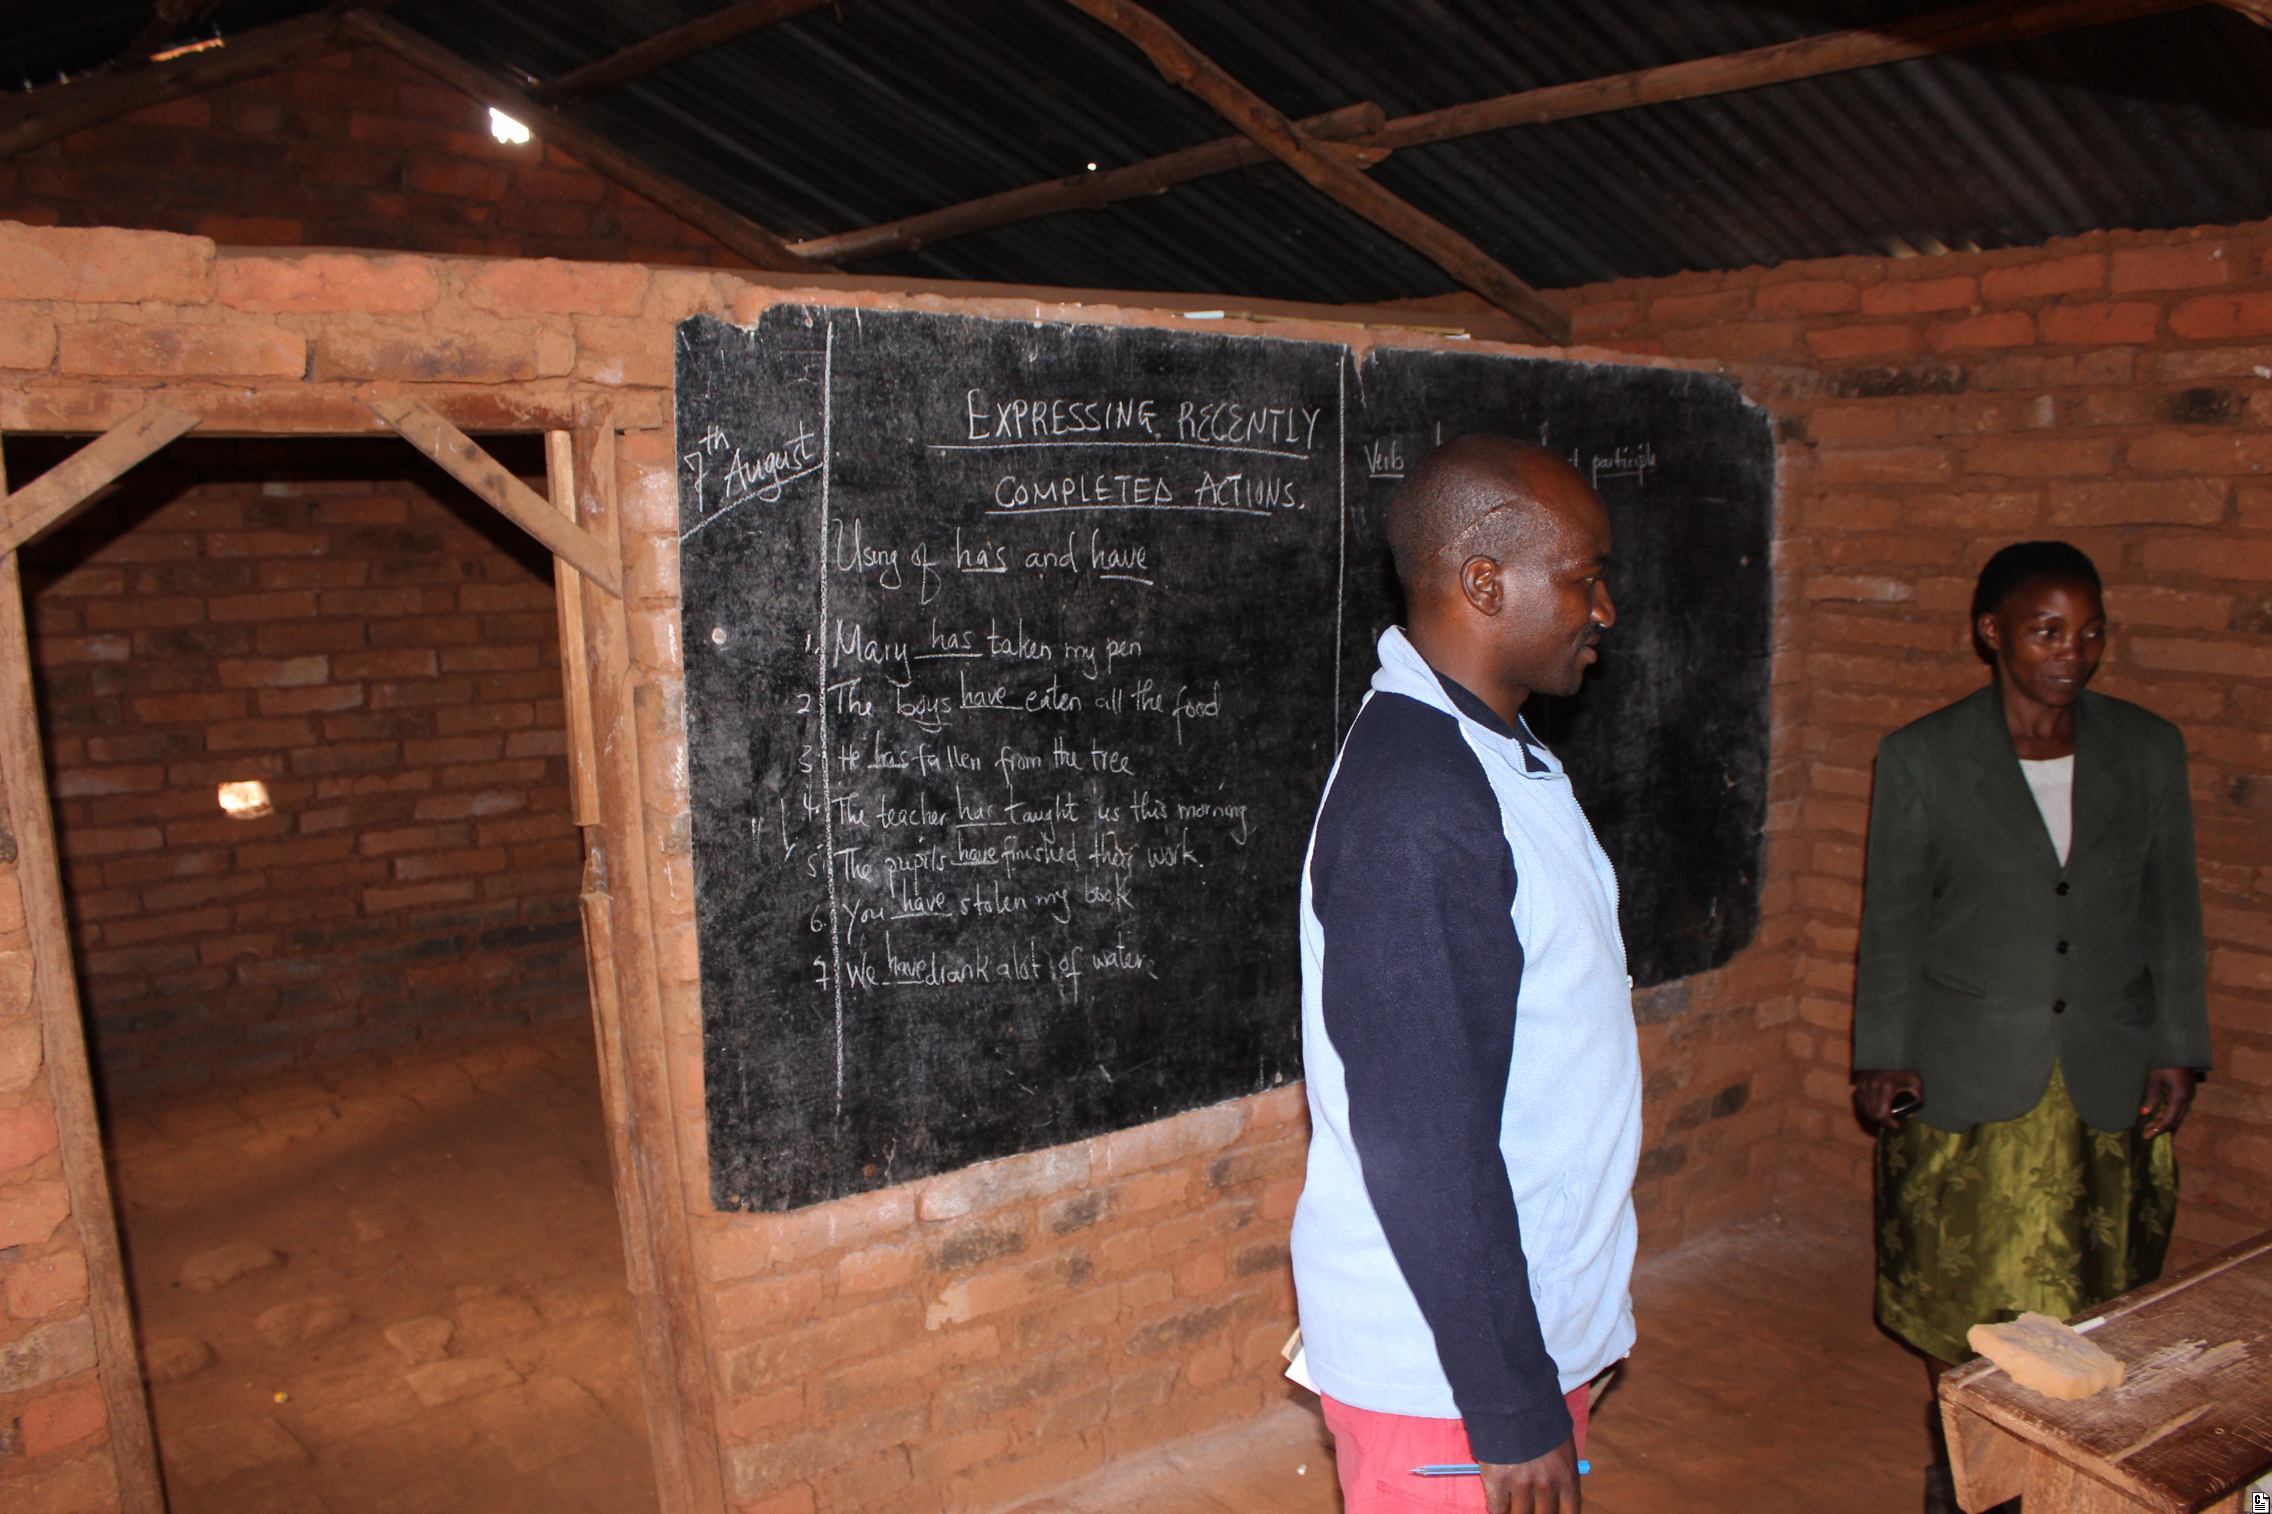 7th August
EXPRESSING RECENTLY
COMPLETED ACTIONS.
Using of has and have
1. Mary has taken my pen
2 The boys have eaten all the food
3 He has fallen from the tree
4. The teacher has taught us this morning
5 The pupils have finished their work.
6. You have stolen my book
7 We have drank alot of water
Verb
participle